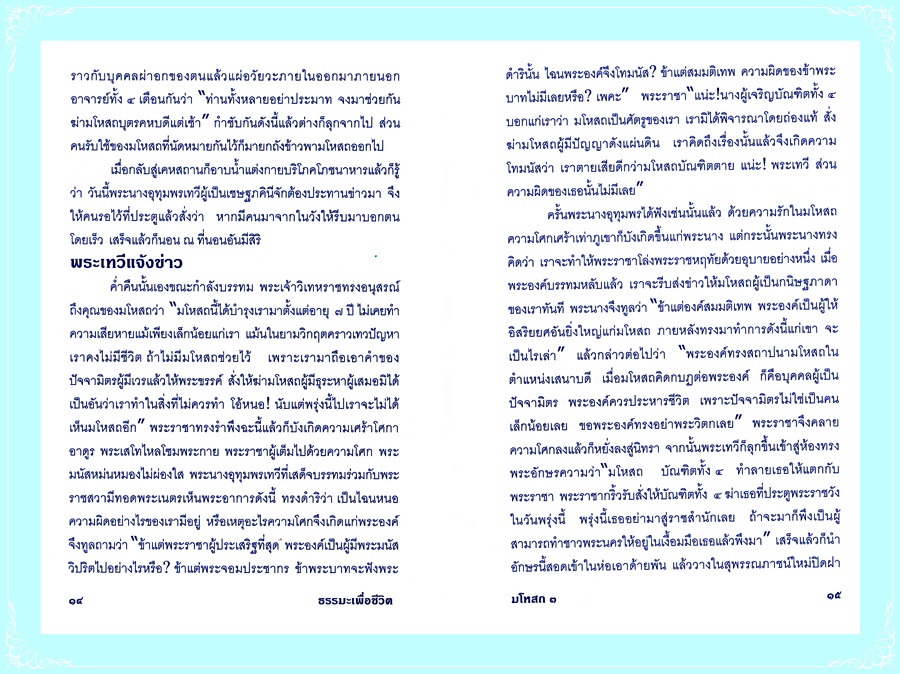 ราวกับบุคคลผ่าอกของตนแล้วแผ่อวัยวะภายในออกมาภายนอก
อาจารย์ทั้ง ๔ เตือนกันว่า "ท่านทั้งหลายอย่าประมาท จงมาช่วยกัน
ฆ่ามโหสถบุตรคหบดีแต่เช้า" กำชับกันดังนี้แล้วต่างก็ลุกจากไป ส่วน
คนรับใช้ของมโหสถที่นัดหมายกันไว้ก็มายกถังข้าวพามโหสถออกไป
เมื่อกลับสู่เคหสถานก็อาบน้ำแต่งกายบริโภคโภชนาหารแล้วก็รู้
ว่า วันนี้พระนางอุทุมพรเทวีผู้เป็นเชษฐภคินีจักต้องประทานข่าวมา จึง
ให้คนรอไว้ที่ประตูแล้วสั่งว่า หากมีคนมาจากในวังให้รีบมาบอกตน
โดยเร็ว เสร็จแล้วก็นอน ณ ที่นอนอันมีสิริ
พระเทวีแจ้งข่าว
ค่ำคืนนั้นเองขณะกำลังบรรทม พระเจ้าวิเทหราชทรงอนุสรณ์
ถึงคุณของมโหสถว่า "มโหสถนี้ได้บำรุงเรามาตั้งแต่อายุ ๗ ปี ไม่เคยทำ
ความเสียหายแม้เพียงเล็กน้อยแก่เรา แม้นในยามวิกฤตคราวเทวปัญหา
เราคงไม่มีชีวิต ถ้าไม่มีมโหสถช่วยไว้ เพราะเรามาถือเอาคำของ
ปัจจามิตรผู้มีเวรแล้วให้พระขรรค์ สั่งให้ฆ่ามโหสถผู้มีธุระหาผู้เสมอมิได้
เป็นอันว่าเราทำในสิ่งที่ไม่ควรทำ โอ้หนอ! นับแต่พรุ่งนี้ไปเราจะไม่ได้
เห็นมโหสถอีก" พระราชาทรงรำพึงฉะนี้แล้วก็บังเกิดความเศร้าโศกา
อาดูร พระเสโทไหลโซมพระกาย พระราชาผู้เต็มไปด้วยความโศก พระ
มนัสหม่นหมองไม่ผ่องใส พระนางอุทุมพรเทวีที่เสด็จบรรทมร่วมกับพระ
ราชสวามีทอดพระเนตรเห็นพระอาการดังนี้ ทรงดำริว่า เป็นไฉนหนอ
ความผิดอย่างไรของเรามีอยู่ หรือเหตุอะไรความโศกจึงเกิดแก่พระองค์
จึงทูลถามว่า "ข้าแต่พระราชาผู้ประเสริฐที่สุด พระองค์เป็นผู้มีพระมนัส
วิปริตไปอย่างไรหรือ? ข้าแต่พระจอมประชากร ข้าพระบาทจะฟังพระ
๑๔ ธรรมะเพื่อชีวิต
ดำรินั้น ไฉนพระองค์จึงโทมนัส? ข้าแต่สมมติเทพ ความผิดของข้าพระ
บาทไม่มีเลยหรือ? เพคะ" พระราชา"แน่ะ!นางผู้เจริญบัณฑิตทั้ง ๔
บอกแก่เราว่า มโหสถเป็นศัตรูของเรา เรามิได้พิจารณาโดยถ่องแท้ สั่ง
ฆ่ามโหสถผู้มีปัญญาดังแผ่นดิน เราคิดถึงเรื่องนั้นแล้วจึงเกิดความ
โทมนัสว่า เราตายเสียดีกว่ามโหสถบัณฑิตตาย แน่ะ! พระเทวี ส่วน
ความผิดของเธอนั้นไม่มีเลย"
ครั้นพระนางอุทุมพรได้ฟังเช่นนั้นแล้ว ด้วยความรักในมโหสถ
ความโศกเศร้าเท่าภูเขาก็บังเกิดขึ้นแก่พระนาง แต่กระนั้นพระนางทรง
คิดว่า เราจะทำให้พระราชาโล่งพระราชหฤทัยด้วยอุบายอย่างหนึ่ง เมื่อ
พระองค์บรรทมหลับแล้ว เราจะรีบส่งข่าวให้มโหสถผู้เป็นกนิษฐภาดา
ของเราทันที พระนางจึงทูลว่า "ข้าแต่องค์สมมติเทพ พระองค์เป็นผู้ให้
อิสริยยศอันยิ่งใหญ่แก่มโหสถ ภายหลังทรงมาทำการดังนี้แก่เขา จะ
เป็นไรเล่า" แล้วกล่าวต่อไปว่า "พระองค์ทรงสถาปนามโหสถใน
ตำแหน่งเสนาบดี เมื่อมโหสถคิดกบฏต่อพระองค์ ก็คือบุคคลผู้เป็น
ปัจจามิตร พระองค์ควรประหารชีวิต เพราะปัจจามิตรไม่ใช่เป็นคน
เล็กน้อยเลย ขอพระองค์ทรงอย่าพระวิตกเลย" พระราชาจึงคลาย
ความโศกลงแล้วก็หยั่งลงสู่นิทรา จากนั้นพระเทวีก็ลุกขึ้นเข้าสู่ห้องทรง
พระอักษรความว่า"มโหสถ บัณฑิตทั้ง ๔ ทำลายเธอให้แตกกับ
พระราชา พระราชากริ้วรับสั่งให้บัณฑิตทั้ง ๔ ฆ่าเธอที่ประตูพระราชวัง
ในวันพรุ่งนี้ พรุ่งนี้เธออย่ามาสู่ราชสำนักเลย ถ้าจะมาก็พึงเป็นผู้
สามารถทำชาวพระนครให้อยู่ในเงื้อมมือเธอแล้วพึงมา" เสร็จแล้วก็นำ
อักษรนี้สอดเข้าในห่อเอาด้ายพัน แล้ววางในสุพรรณภาชน์ใหม่ปิดฝา
มโหสถ ๑ ๑๕